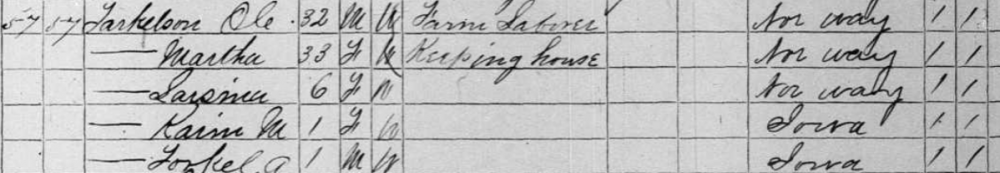 57 57 Tarkelson Ole 32 M W Farm Laborer Nor way 1 1
— Martha 33 F W Keeping house Nor way 1 1
— 6 F W Nor way 1 1
— M 1 F W Iowa 1 1
— Torkel A 1 M W Iowa 1 1